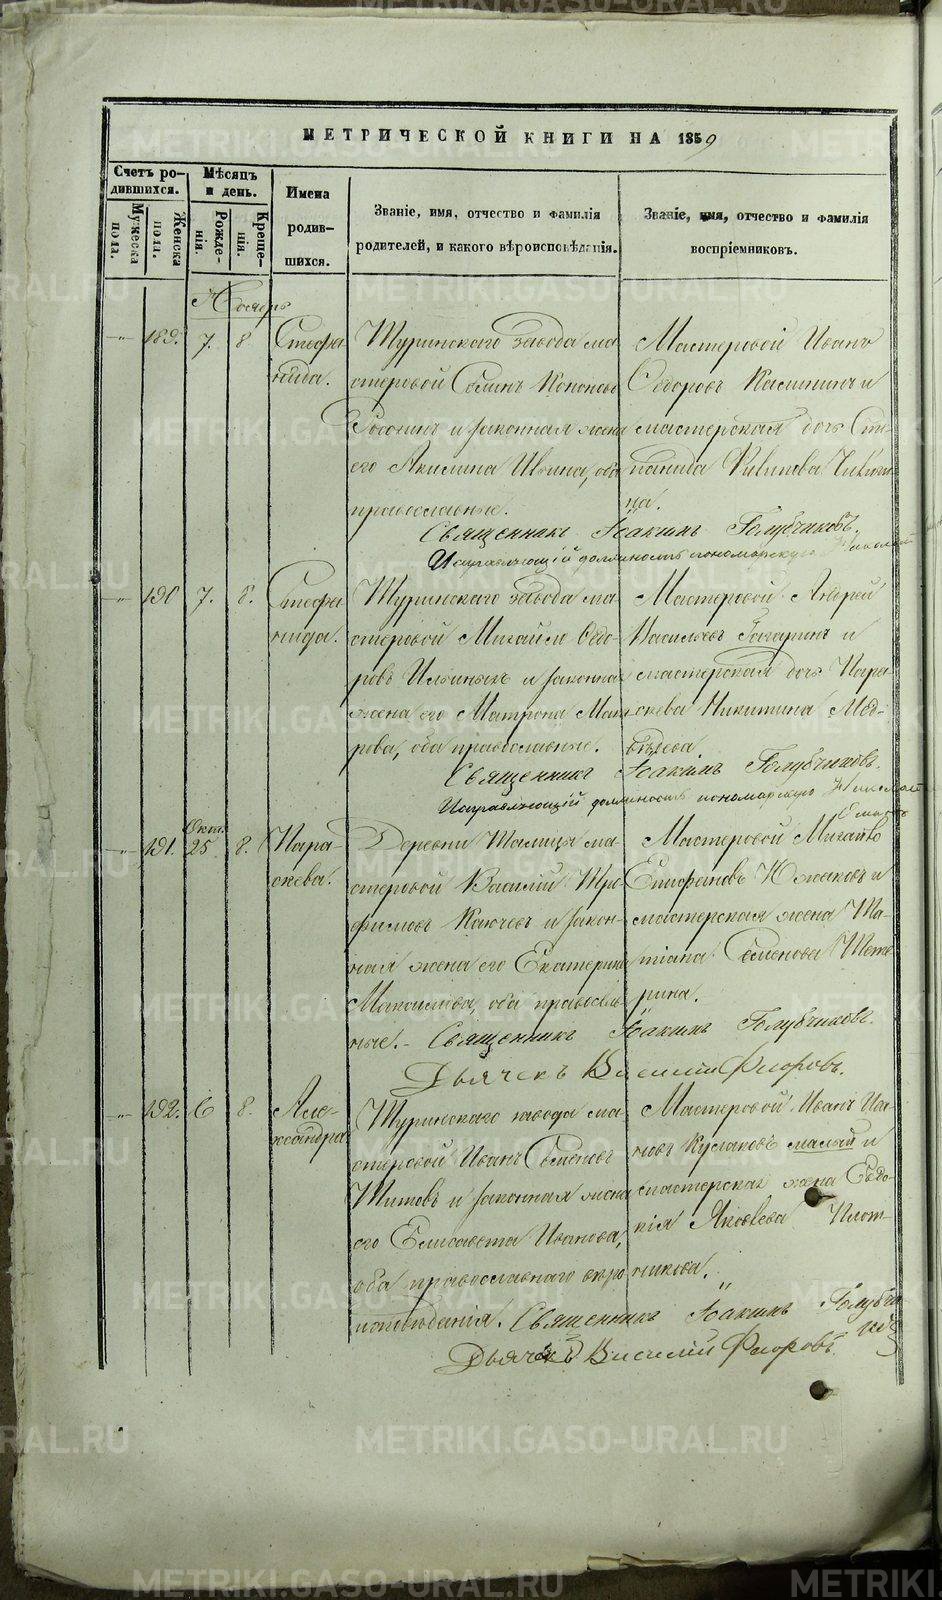 МЕТРИЧЕСКОЙ КНИГИ НА 1859
Счетъ родившихся.
Мужеска пола.
Женска пола.
Мѣсяцъ и день.
Рожденія.
Крещенія.
Имена родившихся.
Званіе, имя, отчество и фамилія родителей, и какого вѣроисповѣданія.
Званіе, имя, отчество и фамилія воспріемниковъ.
Ноябрь
189. 7. 8 Стефанида.
Туринскаго завода мастеровой Кононовъ и законная жена его Акилина Ильина, оба православные.
Мастеровой Иванъ Ѳедоровъ и мастерская дочь
Священникъ Іоакимъ Голубчиковъ.
Исправляющій должность пономарскую Николай
190 7. 8. Стефанида.
Туринскаго завода мастеровой Михаилъ Ѳедоровъ Ильиныхъ и законная жена его Матрона, оба православные.
Мастеровой Андрей Васильевъ Гагаринъ и мастерская дочь Параскева Никитина Медвѣдева.
Священникъ Іоакимъ Голубчиковъ.
Исправляющій должность пономарскую Николай
191. Окт. 25 8. Параскева.
Деревни мастеровой Василій Трофимовъ и законная жена его Екатерина Максимова, оба православные.
Мастеровой Михайло Епифановъ Южаковъ и мастерская жена Татіана Семенова
Священникъ Іоакимъ Голубчиковъ.
Дьячекъ Василій Флоровъ.
192. 6 8. Александра
Туринскаго завода мастеровой Иванъ Семеновъ Титовъ и законная жена его Елисавета Иванова, оба православнаго вѣроисповѣданія.
Мастеровой Иванъ Ивановъ Кулаковъ малый и мастерская жена Евдокія Яковлева Плотникова.
Священникъ Іоакимъ Голубчиковъ
Дьячекъ Василій Флоровъ
METRIKI.GASO-URAL.RU